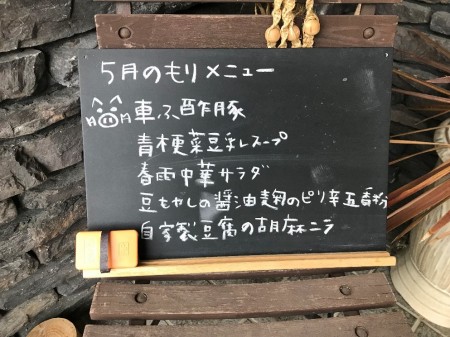 5月のもりメニュー
車ふ酢豚
青梗菜豆乳スープ
春雨中華サラダ
豆もやしの醤油麹のピリ辛五香粉
自家製豆腐の胡麻ニラ